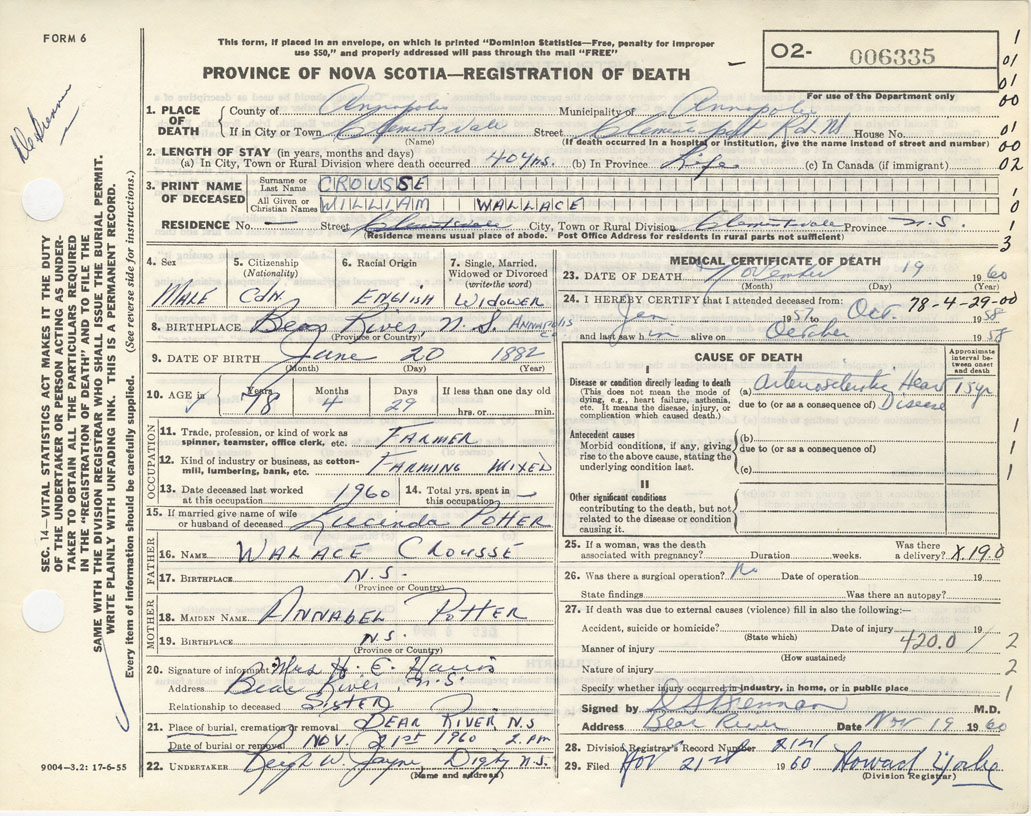 FORM 6
This form, if placed in an envelope, on which is printed "Dominion Statistics—Free, penalty for improper
use $50," and properly addressed will pass through the mail "FREE"
PROVINCE OF NOVA SCOTIA—REGISTRATION OF DEATH
02- 006335
For use of the Department only
SEC. 14—VITAL STATISTICS ACT MAKES IT THE DUTY
OF THE UNDERTAKER OR PERSON ACTING AS UNDER-
TAKER TO OBTAIN ALL THE PARTICULARS REQUIRED
IN THE "REGISTRATION OF DEATH" AND TO FILE THE
SAME WITH THE DIVISION REGISTRAR WHO SHALL ISSUE THE BURIAL PERMIT.
WRITE PLAINLY WITH UNFADING INK. THIS IS A PERMANENT RECORD.
Every item of information should be carefully supplied. (See reverse side for instructions.)
1. PLACE OF DEATH
County of Annapolis Municipality of Annapolis
If in City or Town Clementsvale Street Clementsport Rd. NS House No.
(Name) (If death occurred in a hospital or institution, give the name instead of street and number)
2. LENGTH OF STAY (in years, months and days)
(a) In City, Town or Rural Division where death occurred 40 yrs. (b) In Province Life (c) In Canada (if immigrant)
3. PRINT NAME OF DECEASED
Surname or Last Name CROUSSE
All Given or Christian Names WILLIAM WALLACE
RESIDENCE No. — Street Clementsvale City, Town or Rural Division Clementsvale Province N.S.
(Residence means usual place of abode. Post Office Address for residents in rural parts not sufficient)
4. Sex MALE
5. Citizenship (Nationality) CDN.
6. Racial Origin ENGLISH
7. Single, Married, Widowed or Divorced (write the word) WIDOWER
8. BIRTHPLACE Bear River, N.S. ANNAPOLIS Co
(Province or Country)
9. DATE OF BIRTH June 20 1882
(Month) (Day) (Year)
10. AGE in Years 78 Months 4 Days 29 If less than one day old hrs. or min.
OCCUPATION
11. Trade, profession, or kind of work as spinner, teamster, office clerk, etc. FARMER
12. Kind of industry or business, as cotton-mill, lumbering, bank, etc. FARMING MIXED
13. Date deceased last worked at this occupation. 1960 14. Total yrs. spent in this occupation —
15. If married give name of wife or husband of deceased Lucinda POTTER
FATHER
16. NAME WALACE CROUSSE
17. BIRTHPLACE N.S.
(Province or Country)
MOTHER
18. MAIDEN NAME ANNABEL POTTER
19. BIRTHPLACE N.S.
(Province or Country)
20. Signature of informant Mrs H. E. Harris
Address Bear River, N.S.
Relationship to deceased SISTER
21. Place of burial, cremation or removal BEAR RIVER N.S
Date of burial or removal NOV. 21st 1960 2 pm
22. UNDERTAKER W. Jayne, Digby N.S.
(Name and address)
9004—3.2: 17-6-55
MEDICAL CERTIFICATE OF DEATH
23. DATE OF DEATH November 19 1960
(Month) (Day) (Year)
24. I HEREBY CERTIFY that I attended deceased from: 78-4-29-00
Jan 1957 to Oct. 1958
and last saw him alive on October 1958
CAUSE OF DEATH
Approximate interval between onset and death
I
Disease or condition directly leading to death
(This does not mean the mode of dying, e.g., heart failure, asthenia, etc. It means the disease, injury, or complication which caused death.)
(a) Arteriosclerotic Heart 15 yr
due to (or as a consequence of) Disease
Antecedent causes
Morbid conditions, if any, giving rise to the above cause, stating the underlying condition last.
(b)
due to (or as a consequence of)
(c)
II
Other significant conditions
contributing to the death, but not related to the disease or condition causing it.
25. If a woman, was the death associated with pregnancy? Duration weeks. Was there a delivery? X.19.0
26. Was there a surgical operation? No Date of operation 19
State findings Was there an autopsy?
27. If death was due to external causes (violence) fill in also the following:—
Accident, suicide or homicide? Date of injury 19
(State which)
Manner of injury 420.0
(How sustained)
Nature of injury
Specify whether injury occurred in industry, in home, or in public place
Signed by Brennan M.D.
Address Bear River Date Nov 19 1960
28. Division Registrar's Record Number
29. Filed Nov 21st 1960 Howard
(Division Registrar)
1
01
01
00
01
00
02
1
0
1
3
1
1
1
1
2
2
1